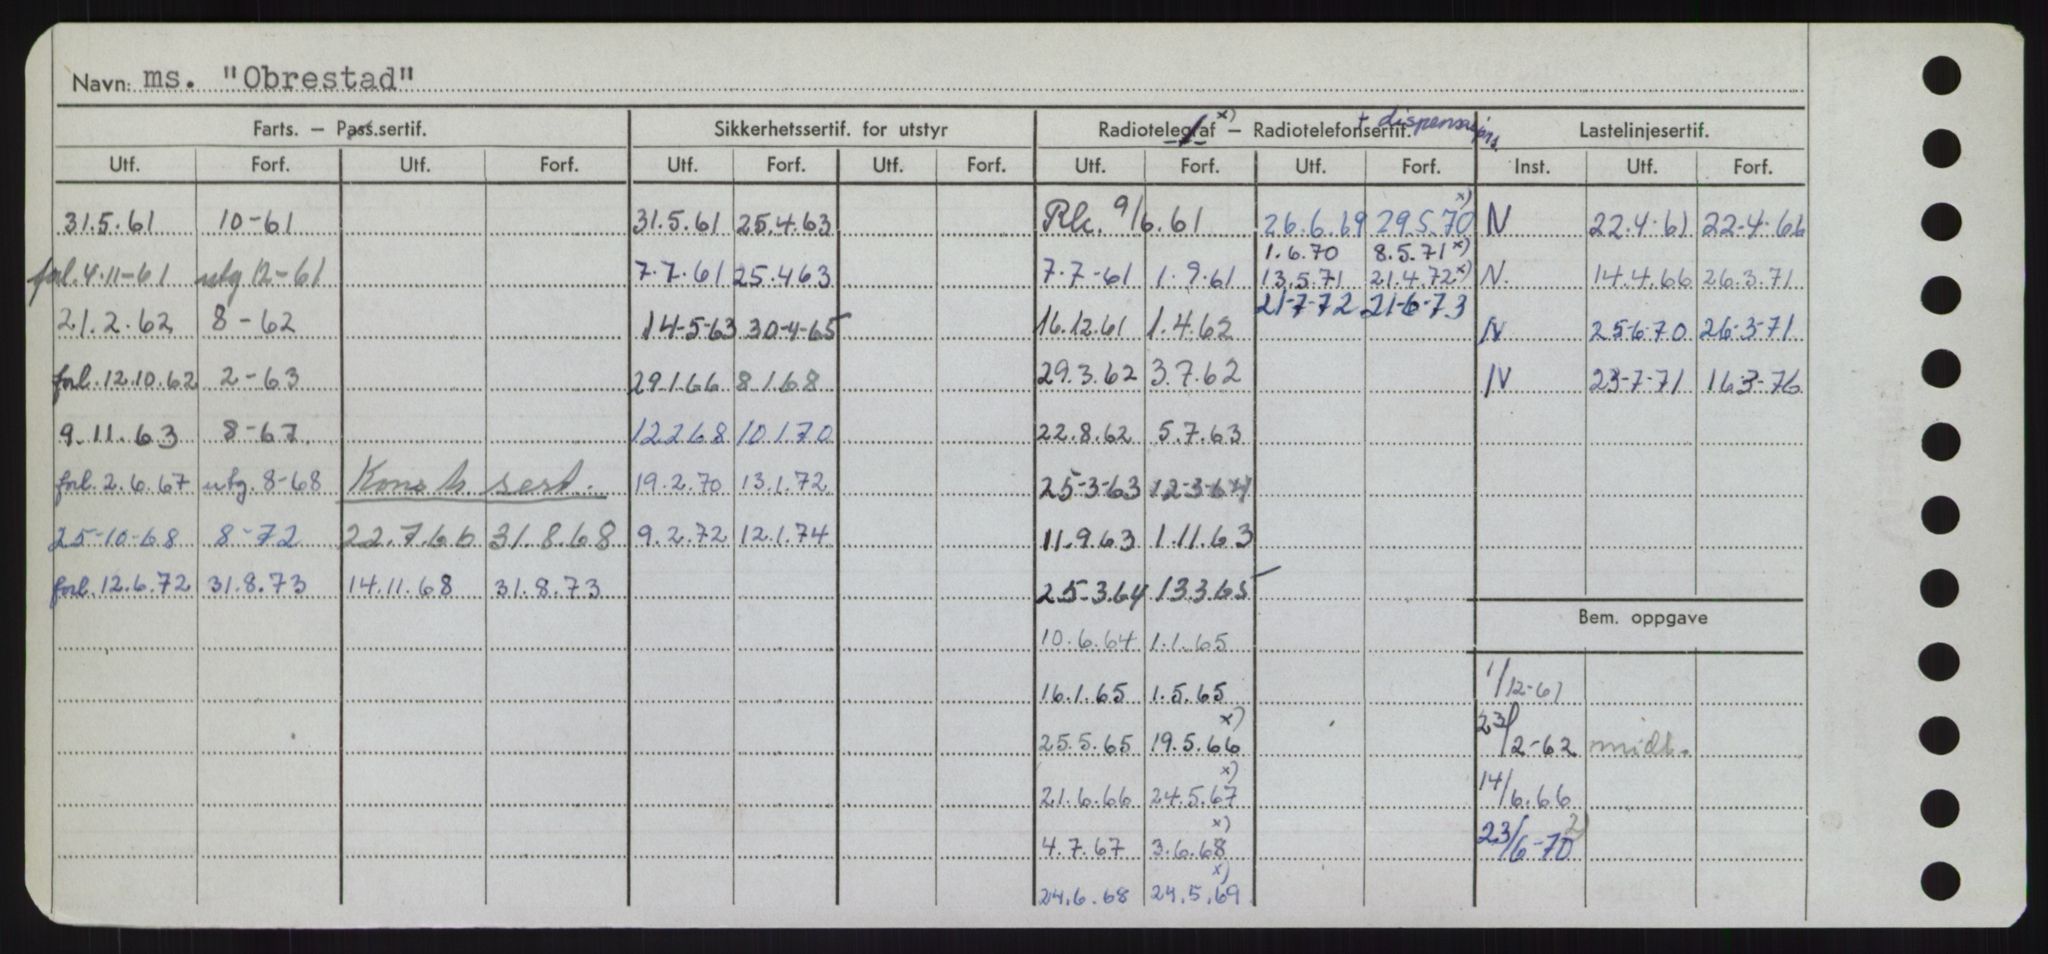 Navn: ms. "Obrestad"
Farts. – Pass.sertif. Sikkerhetssertif. for utstyr Radiotelegraf x) – Radiotelefonsertif. + dispensasjons. Lastelinjesertif.
Utf. Forf. Utf. Forf. Utf. Forf. Utf. Forf. Utf. Forf. Utf. Forf. Inst. Utf. Forf.
31.5.61 10-61 31.5.61 25.4.63 Rk. 9/6.61 26.6.69 29.5.70 x) N 22.4.61 22.4.66
1.6.70 8.5.71 x)
forl. 4.11-61 utg 12-61 7.7.61 25.4.63 7.7-61 1.9.61 13.5.71 21.4.72 x) N. 14.4.66 26.3.71
21-7-72 21-6-73
21.2.62 8-62 14-5-63 30-4-65 16.12.61 1.4.62 N 25-6-70 26-3-71
forl. 12.10.62 2-63 29.1.66 8.1.68 29.3.62 3.7.62 N 23-7-71 16.3-76
9.11.63 8-67 12.2.68 10.1.70 22.8.62 5.7.63
forl. 2.6.67 utg. 8-68 Konv. sert. 19.2.70 13.1.72 25-3-63 12-3-64
25-10-68 8-72 22.7.66 31.8.68 9.2.72 12.1.74 11.9.63 1.11.63
forl. 12.6.72 31.8.73 14.11.68 31.8.73 25-3.64 13.3.65
Bem. oppgave
10.6.64 1.1.65
16.1.65 1.5.65 1/12-61
25.5.65 19.5.66 x) 23/2-62 midl.
21.6.66 24.5.67 x) 14/6.66
4.7.67 3.6.68 x) 23/6-70 2)
24.6.68 24.5.69 x)